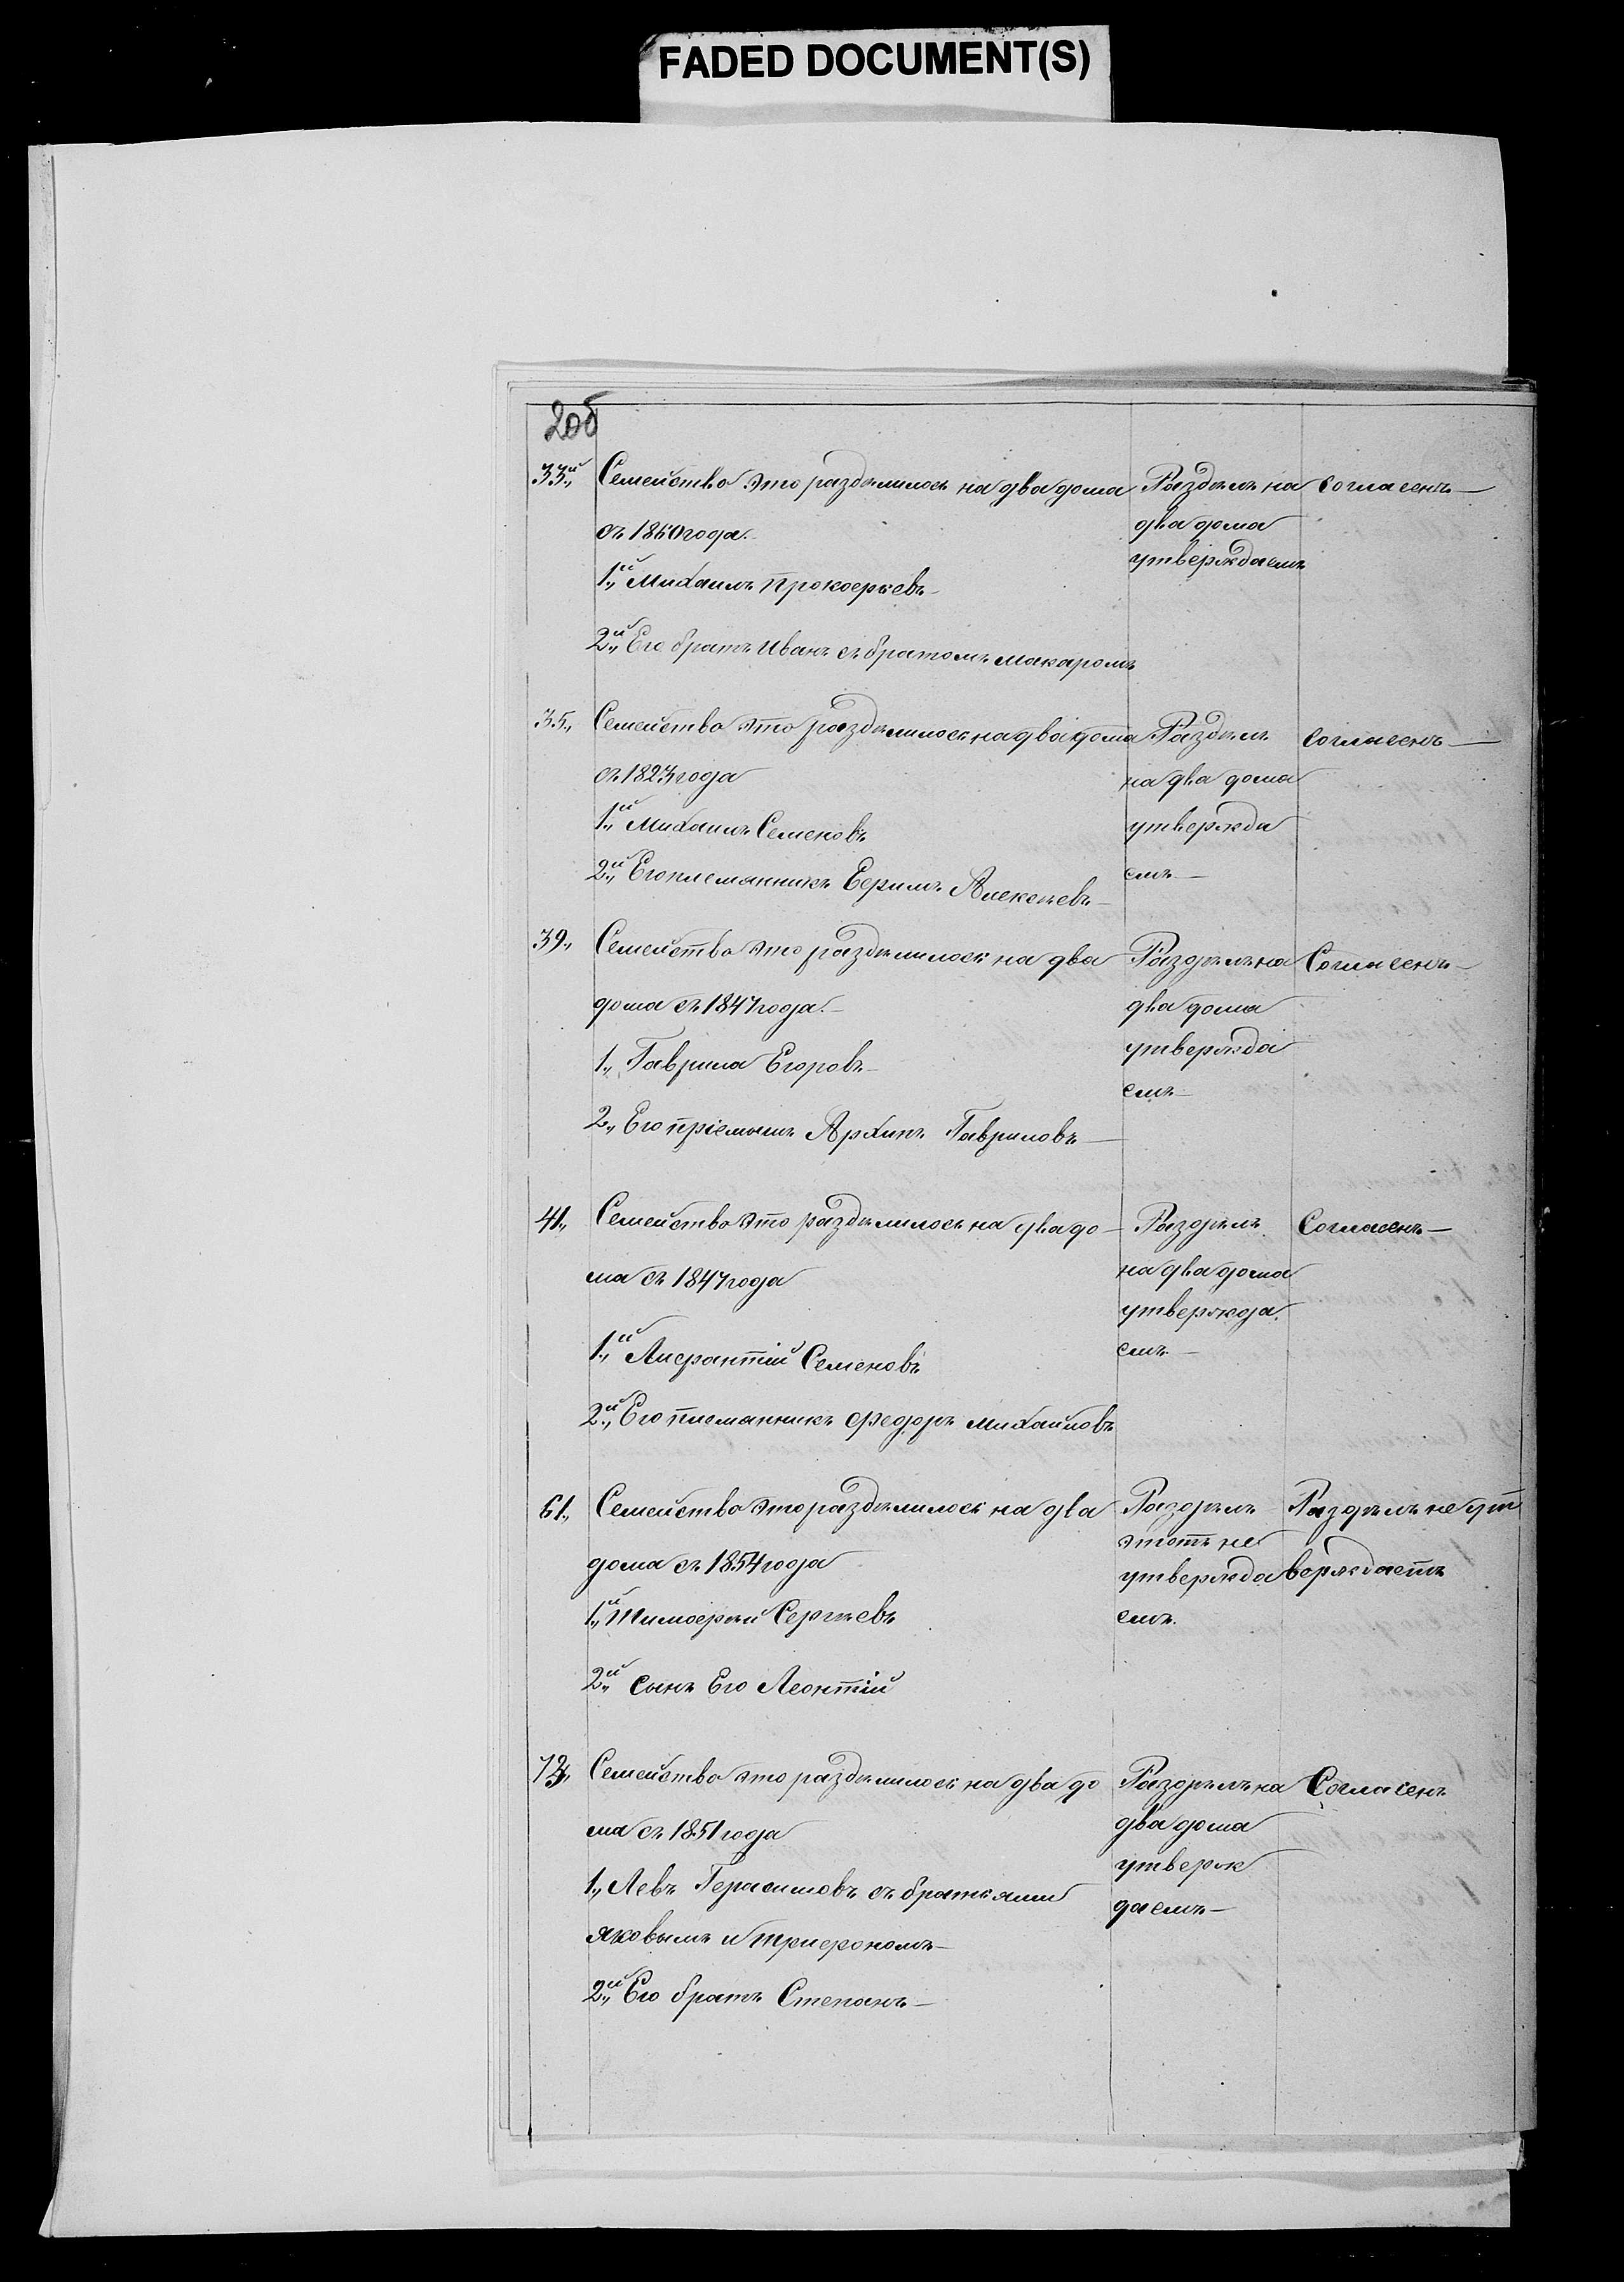 FADED DOCUMENT(S)
20б
33й„ Семейство это раздѣлилось на два дома
съ 1860 года.
1й„ Михаилъ Прокофьевъ
2й„ Его братъ Иванъ съ братомъ Макаромъ
Раздѣлъ на
два дома
утверждаемъ
согласенъ—
35„ Семейство это раздѣлилось на два дома
съ 1823 года
1й„ Михаилъ Семеновъ
2й„ Его племянникъ Ефимъ Алексѣевъ—
Раздѣлъ
на два дома
утвержда
емъ—
согласенъ—
39„ Семейство это раздѣлилось на два
дома съ 1847 года.—
1„ Гаврила Егоровъ—
2„ Его пріемышъ Архипъ Гавриловъ—
Раздѣлъ на
два дома
утвержда
емъ—
Согласенъ—
41„ Семейство это раздѣлилось на два до—
ма съ 1847 года
1й„ Лиферантій Семеновъ
2й„ Его племянникъ Федоръ Михайловъ
Раздѣлъ
на два дома
утвержда.
емъ—
Согласенъ—
61„ Семейство это раздѣлилось на два
дома съ 1854 года
1й„ Тимофѣй Сергѣевъ
2й„ сынъ Его Леонтій
Раздѣлъ
этотъ не
утвержда
емъ.
Раздѣлъ не ут
верждаетъ
73„ Семейство это раздѣлилось на два до
ма съ 1851 года
1„ Левъ Герасимовъ съ братьями
Яковымъ и Трифономъ—
2й„ Его братъ Степанъ—
Раздѣлъ на
два дома
утверж
даемъ—
Согласенъ